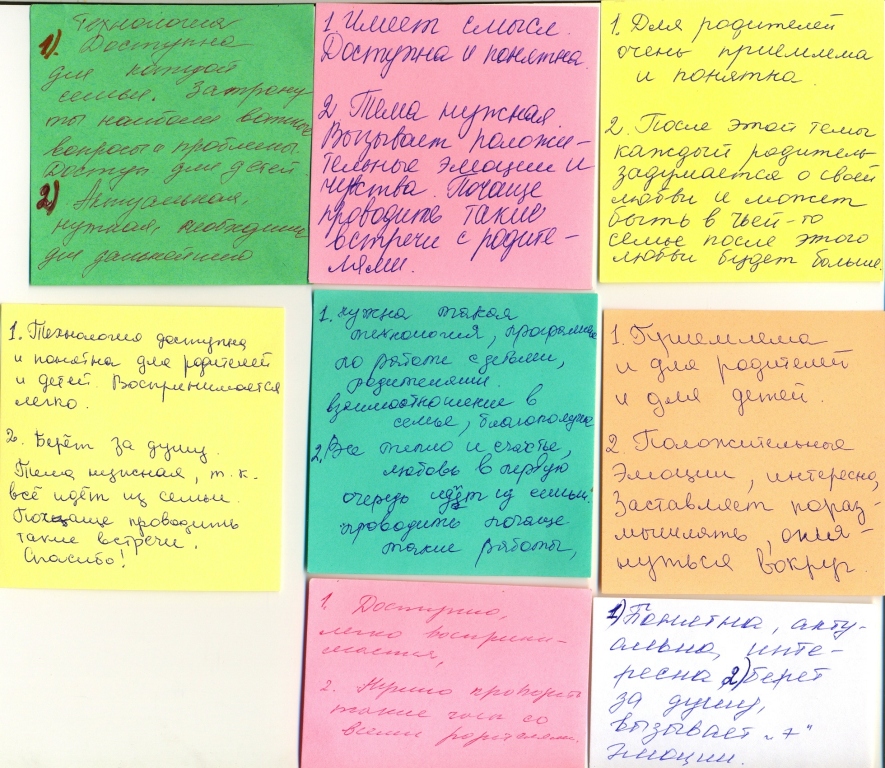 Технология
1). Доступна
для каждой
семьи. Затрону
ты наиболее важные
вопросы и проблемы.
Доступн для детей.
2) Актуальная,
нужная, необходима
для дальнейшего
1. Имеет смысл.
Доступна и понятна.
2. Тема нужная
Вызывает положи-
тельные эмоции и
чувства. Почаще
проводить такие
встречи с родите-
лями.
1. Для родителей
очень приемлема
и понятна
2. После этой темы
каждый родитель
задумается о своей
любви и может
быть в чьей-то
семье после этого
любви будет больше.
1. Технология доступна
и понятна для родителей
и детей. Воспринимается
легко.
2. Берёт за душу.
Тема нужная, т.к.
всё идёт из семьи.
Почаще проводить
такие встречи.
Спасибо!
1. нужна такая
технология, программа
по работе с детьми,
родителями.
взаимоотношение в
семье,
2. Все тепло и счастье,
любовь в первую
очередь идёт из семьи.
проводить почаще
такие работы,
1. Приемлема
и для родителей
и для детей.
2. Положительные
Эмоции, интересно,
Заставляет пораз-
мышлять, огля-
нуться вокруг.
1. Доступно,
легко восприни-
мается,
2. Нужно проводить
такие часы со
всеми родителями.
1) Понятна, акту-
альна, инте-
ресна 2) берет
за душу,
вызывает „+"
эмоции.